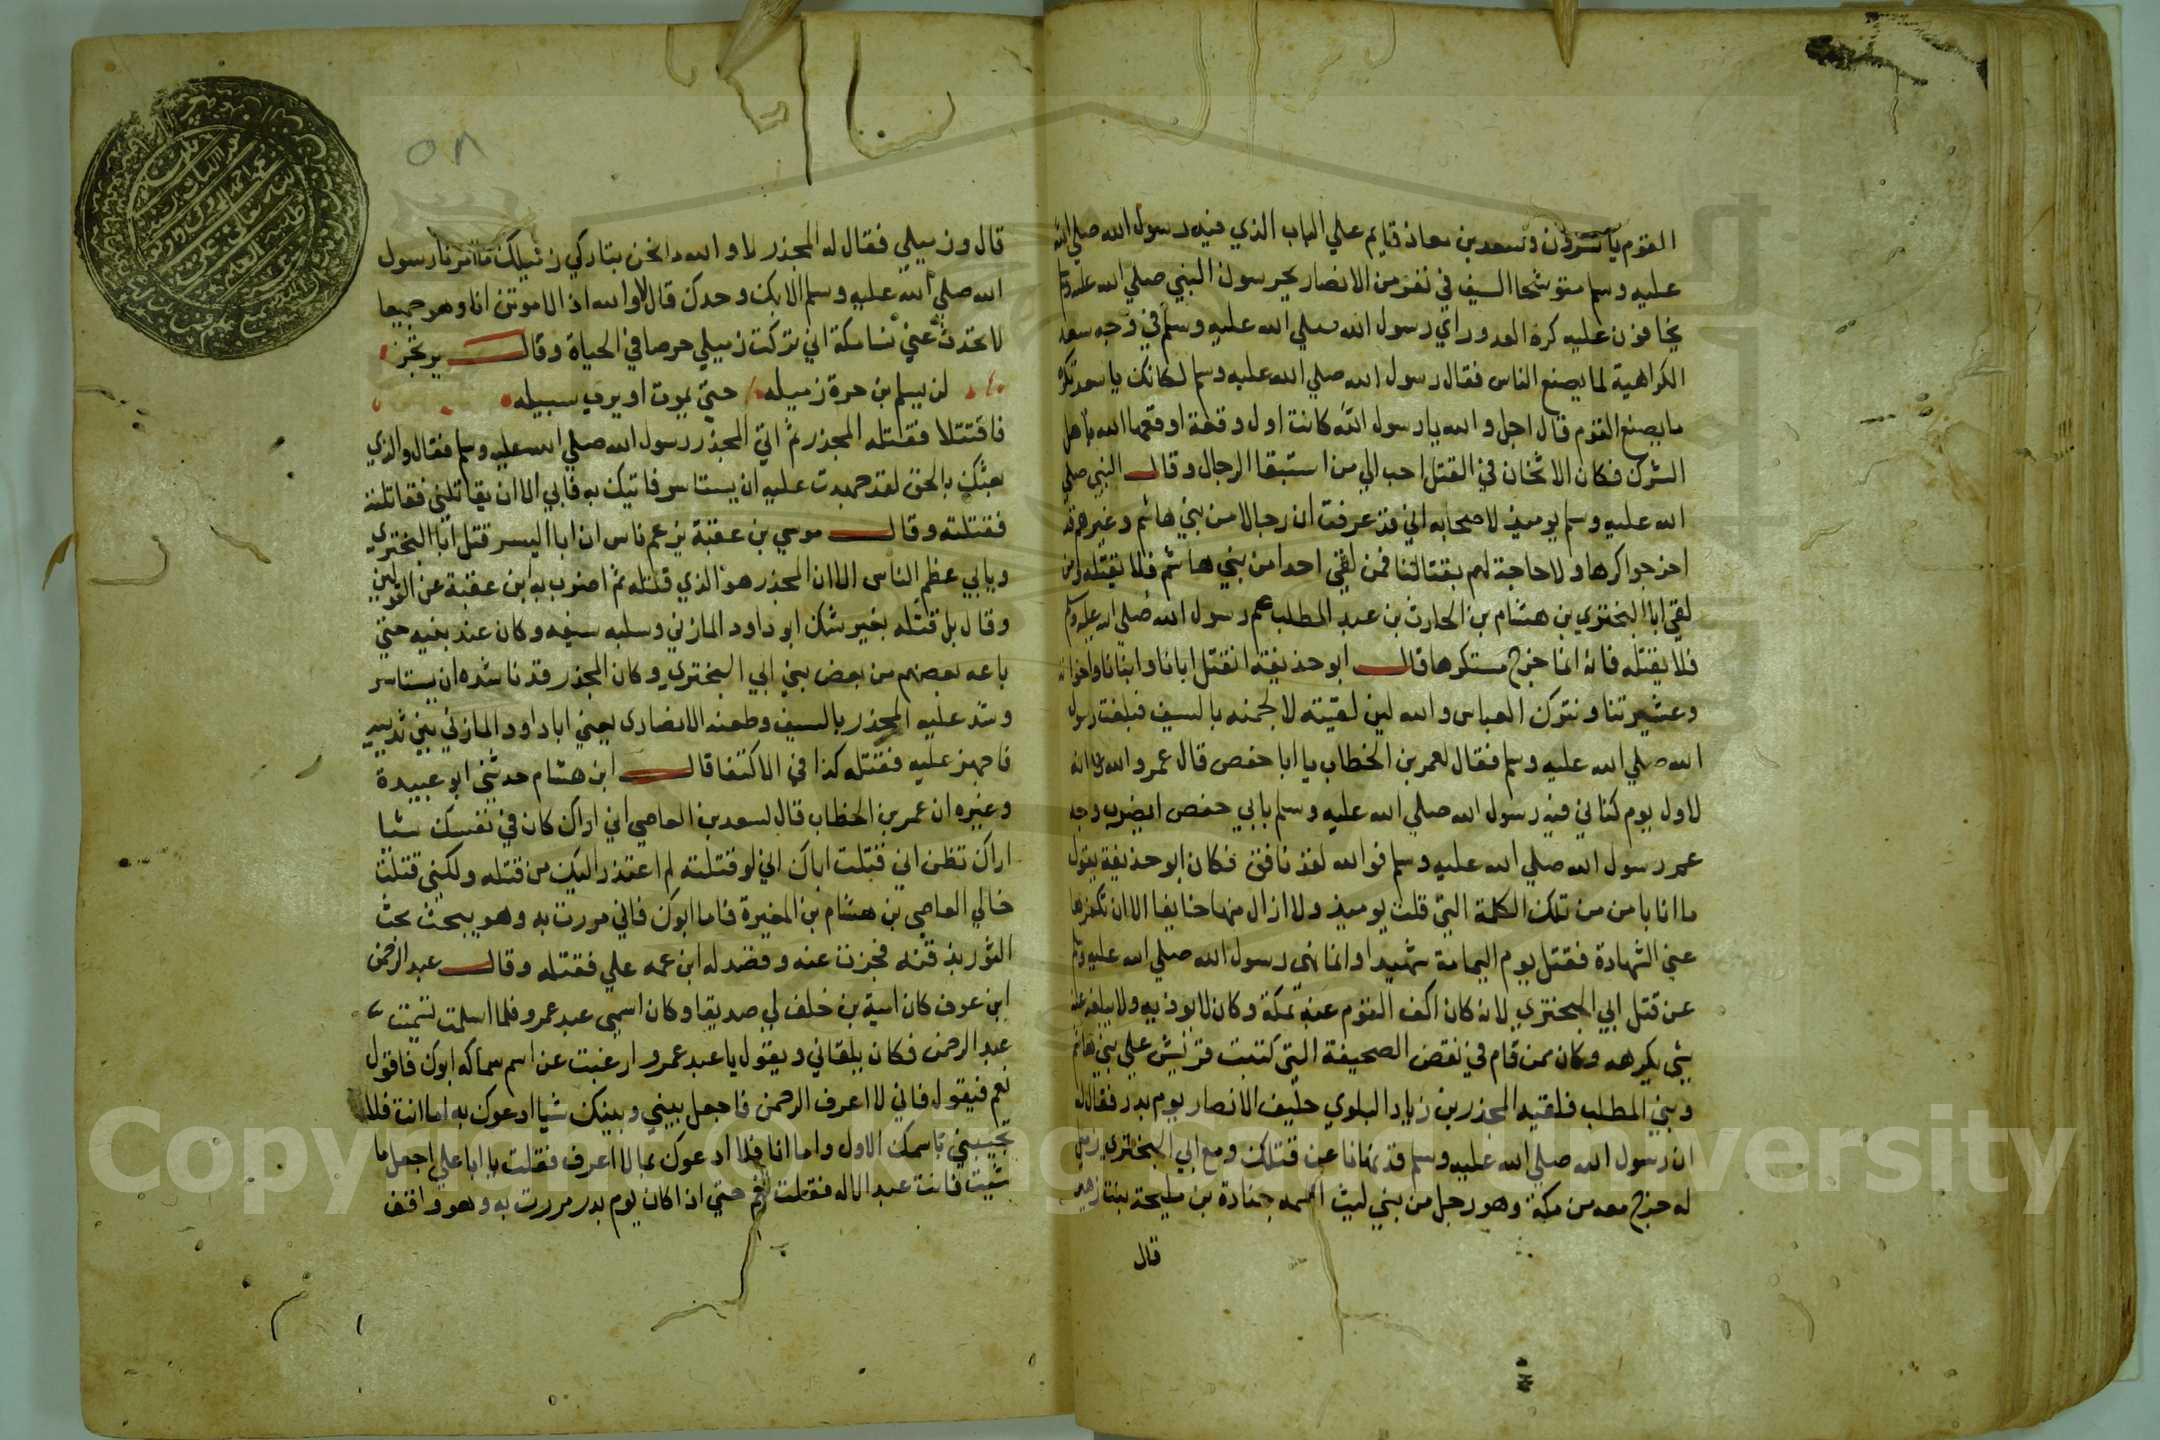 القوم ياسرون وسعد بن معاذ قايم علي الباب الذي فيه رسول الله صلي الله
عليه وسلم متوشحا السيف في نفر من الانصار يحرسون النبي صلي الله عليه وسلم
يخافون عليه كرة العدو وراي رسول الله صلي الله عليه وسلم في وجه سعد
الكراهية لما يصنع الناس فقال رسول الله صلي الله عليه وسلم لكانك يا سعد تكره
ما يصنع القوم قال اجل والله يا رسول الله كانت اول وقعة اوقعها الله باهل
الشرك فكان الاثخان في القتل احب الي من استبقا الرجال وقال النبي صلي
الله عليه وسلم يوميذ لاصحابه اني قد عرفت ان رجالا من بني هاشم وغيرهم قد
اخرجوا كرها ولا حاجة لهم بقتالنا فمن لقي احدا من بني هاشم فلا يقتله ومن
لقي ابا البختري بن هشام بن الحارث بن عبد المطلب عم رسول الله صلي الله عليه وسلم
فلا يقتله فانه انما خرج مستكرها قال ابو حذيفة انقتل ابانا وابنانا واخواننا
وعشيرتنا ونترك العباس والله لين لقيته لالجمنه بالسيف فبلغت رسول
الله صلي الله عليه وسلم فقال لعمر بن الخطاب يا ابا حفص قال عمر والله انه
لاول يوم كناني فيه رسول الله صلي الله عليه وسلم بابي حفص ايضرب وجه
عم رسول الله صلي الله عليه وسلم فوالله لقد نافق فكان ابو حذيفة يقول
ما انا بامن من تلك الكلمة التي قلت يوميذ ولا ازال منها خايفا الا ان تكفرها
عني الشهادة فقتل يوم اليمامة شهيدا وانما نهي رسول الله صلي الله عليه وسلم
عن قتل ابي البختري لانه كان اكف القوم عنه بمكة وكان لا يوذيه ولا يبلغه عنه
شي يكرهه وكان ممن قام في نقض الصحيفة التي كتبت قريش علي بني هاشم
وبني المطلب فلقيه المجذر بن زياد البلوي حليف الانصار يوم بدر فقال له
ان رسول الله صلي الله عليه وسلم قد نهانا عن قتلك ومع ابي البختري زميل
له خرج معه من مكة وهو رجل من بني ليث اسمه جنادة بن مليحة بنت زهير
قال
٥٨
قال وزميلي فقال له المجذر لا والله ما نحن بتاركي زميلك ما امرنا رسول
الله صلي الله عليه وسلم الا بك وحدك قال لا والله اذا لاموتن انا وهو جميعا
لا تحدث عني نسا مكة اني تركت زميلي حرصا في الحياة وقال يرتجز
لن يسلم ابن حرة زميله حتي يموت او يري سبيله
فاقتتلا فقتله المجذر ثم اتي المجذر رسول الله صلي الله عليه وسلم فقال والذي
بعثك بالحق لقد جهدت عليه ان يستاسر فاتيك به فابي الا ان يقاتلني فقاتلته
فقتلته وقال موسي بن عقبة يزعم ناس ان ابا اليسر قتل ابا البختري
ويابي عظم الناس الا ان المجذر هو الذي قتله ثم اضرب به ابن عقبة عن القولين
وقال بل قتله بغير شك ابو داود المازني وسلبه سيفه وكان عند بنيه حتي
باعه بعضهم من بعض بني ابي البختري وكان المجذر قد ناشده ان يستاسر
وشد عليه المجذر بالسيف وطعنه الانصاري يعني ابا داود المازني بين ثدييه
فاجهز عليه فقتله كذا في الاكتفا قال ابن هشام حدثني ابو عبيدة
وغيره ان عمر بن الخطاب قال لسعد بن العاصي اني اراك كان في نفسك شيا
اراك تظن اني قتلت اباك اني لو قتلته لم اعتذر اليك من قتله ولكني قتلت
خالي العاصي بن هشام بن المغيرة فاما ابوك فاني مررت به وهو يبحث بحث
الثور بقرنه فجزت عنه وقصد له ابن عمه علي فقتله وقال عبد الرحمن
ابن عوف كان امية بن خلف لي صديقا وكان اسمي عبد عمرو فلما اسلمت تسميت
عبد الرحمن فكان يلقاني ويقول يا عبد عمرو ارغبت عن اسم سماكه ابوك فاقول
نعم فيقول فاني لا اعرف الرحمن فاجعل بيني وبينك شيا ادعوك به اما انت فلا
تجيبني باسمك الاول واما انا فلا ادعوك بما لا اعرف فقلت يا ابا علي اجعل ما
شيت فانت عبد الاله فقلت نعم حتي اذا كان يوم بدر مررت به وهو واقف
Copyright © King Saud University